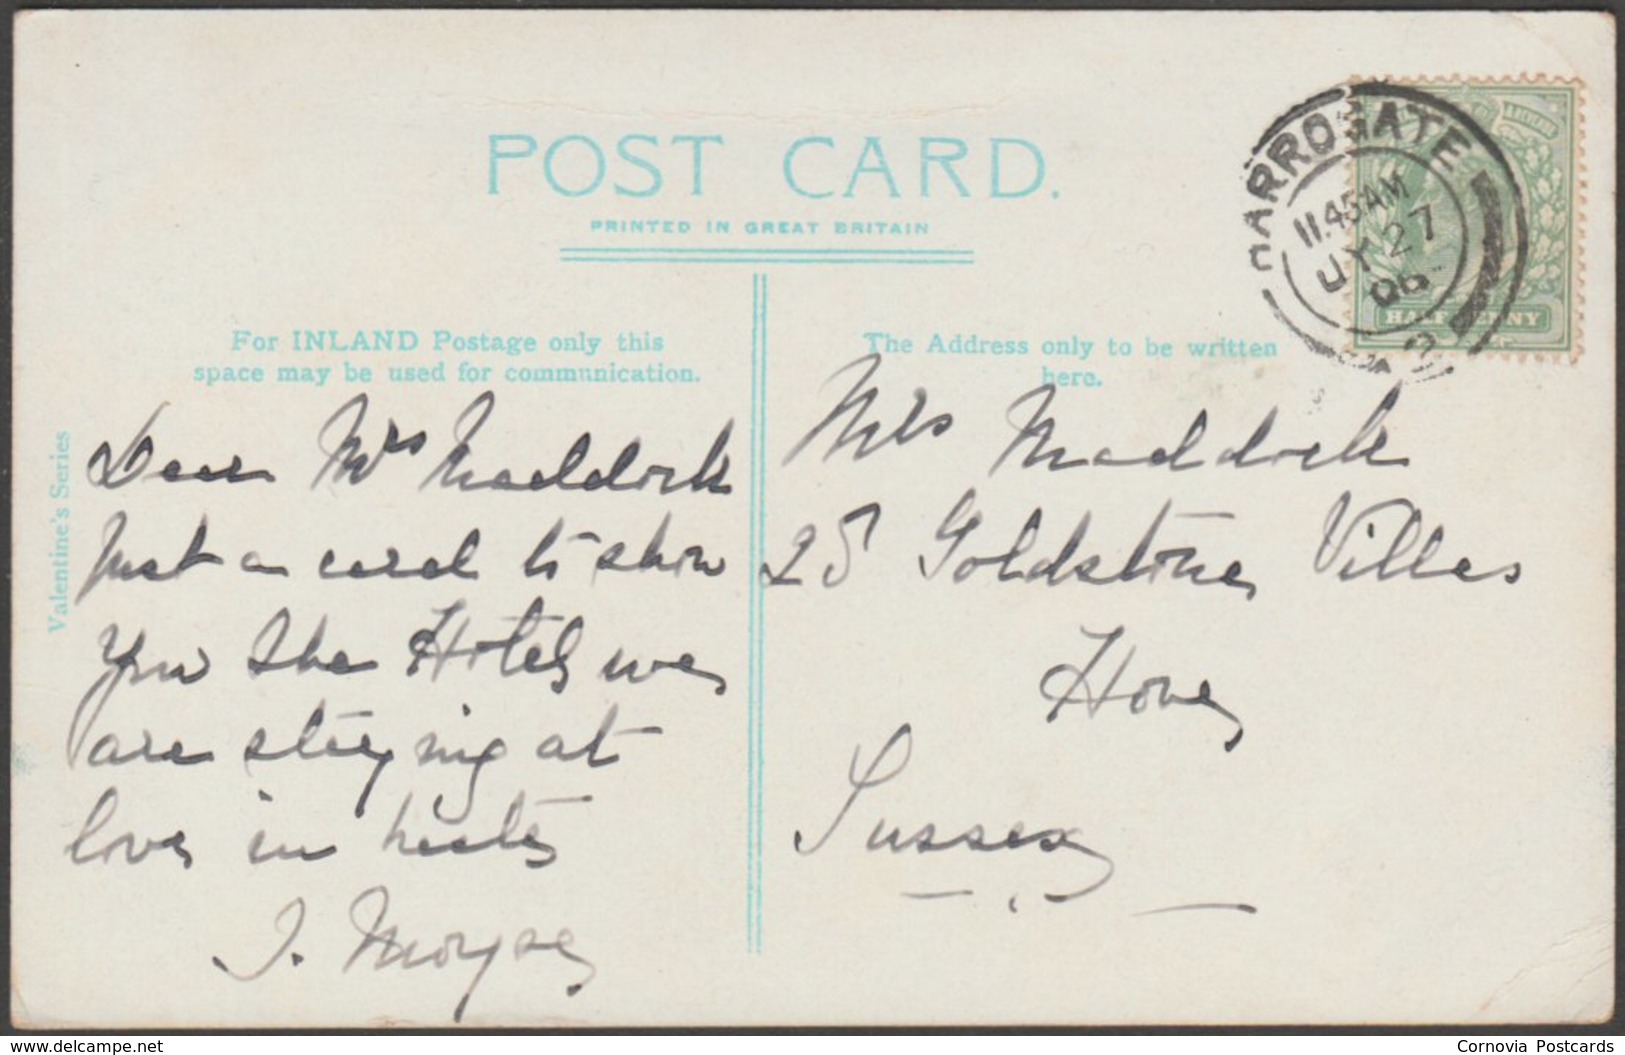 POST CARD.
PRINTED IN GREAT BRITAIN
For INLAND Postage only this
space may be used for communication.
The Address only to be written
here.
Valentine's Series
HARROGATE
11.45AM
JY 27
06
HALF PENNY
Dear Mrs Maddock
Just a card to show
you the Hotel we
are staying at
love in haste
J. Moyse
Mrs Maddock
25 Goldstone Villas
Hove
Sussex
www.delcampe.net
Cornovia Postcards